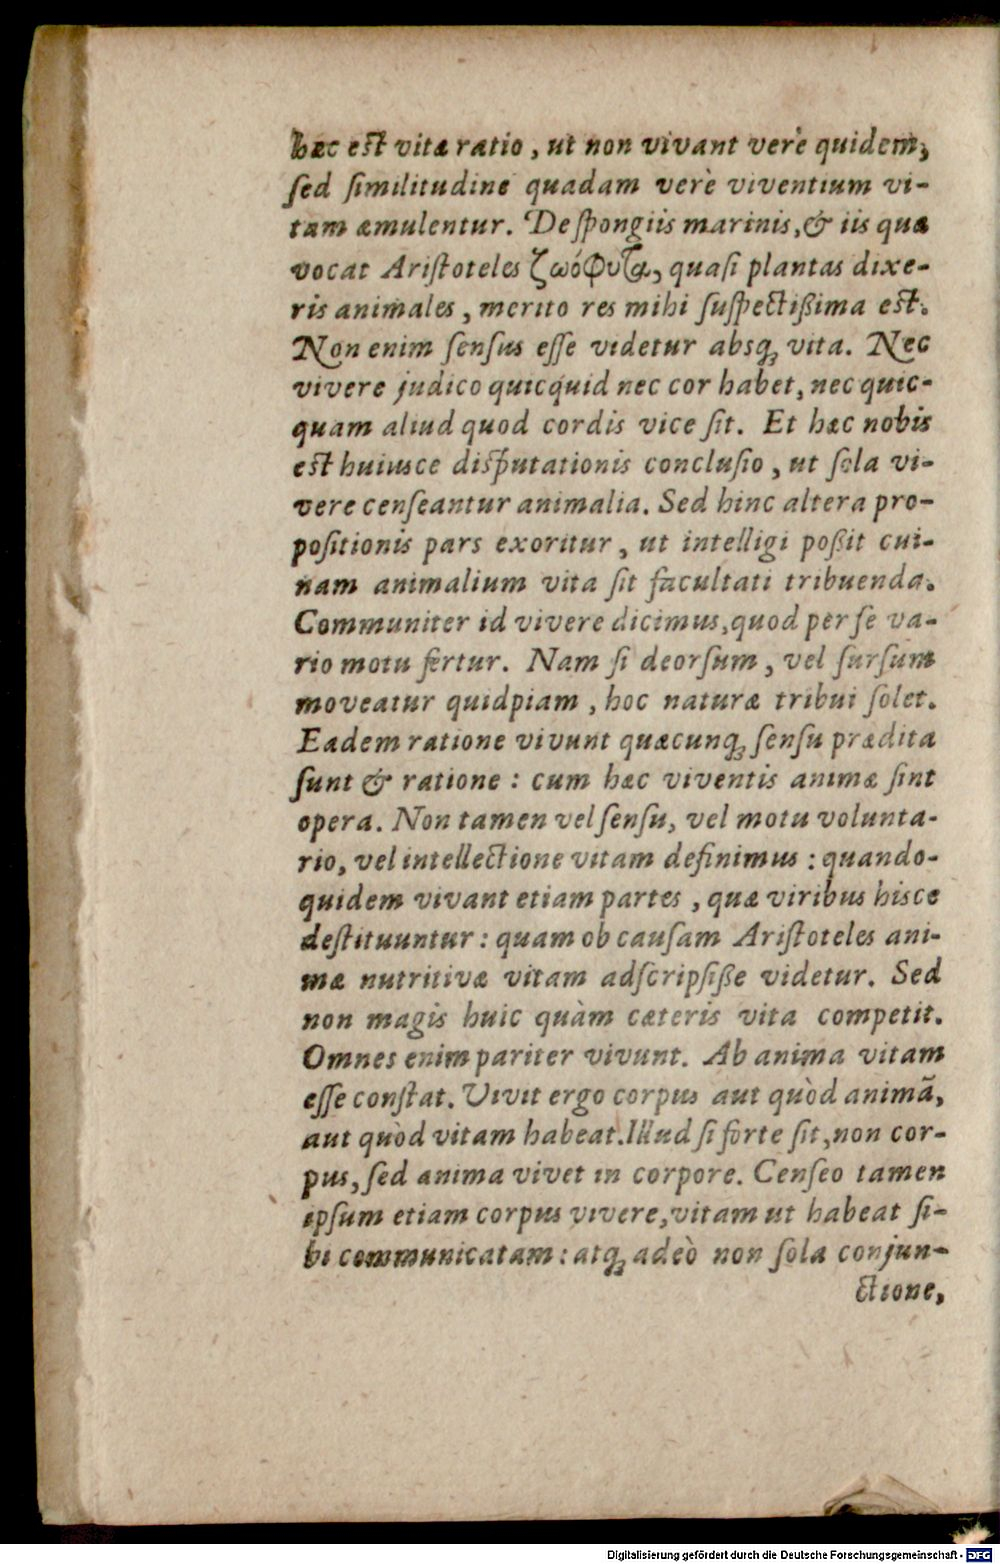 hæc est vitæ ratio, ut non vivant verè quidem,
ſed ſimilitudine quadam verè viventium vi-
tam æmulentur. De ſpongiis marinis, & iis quæ
vocat Ariſtoteles ζωόφυτα, quaſi plantas dixe-
ris animales, merito res mihi ſuſpectißima eſt.
Non enim ſenſus eſſe videtur absq; vita. Nec
vivere judico quicquid nec cor habet, nec quic-
quam aliud quod cordis vice ſit. Et hæc nobis
eſt huiusce diſputationis concluſio, ut ſola vi-
vere cenſeantur animalia. Sed hinc altera pro-
poſitionis pars exoritur, ut intelligi poßit cui-
nam animalium vita ſit facultati tribuenda.
Communiter id vivere dicimus, quod per ſe va-
rio motu fertur. Nam ſi deorſum, vel ſurſum
moveatur quidpiam, hoc naturæ tribui ſolet.
Eadem ratione vivunt quæcunq; ſenſu prædita
ſunt & ratione: cum hæc viventis animæ ſint
opera. Non tamen vel ſenſu, vel motu volunta-
rio, vel intellectione vitam definimus: quando-
quidem vivant etiam partes, quæ viribus hisce
deſtituuntur: quam ob cauſam Ariſtoteles ani-
mæ nutritivæ vitam adſcripſiße videtur. Sed
non magis huic quàm cæteris vita competit.
Omnes enim pariter vivunt. Ab anima vitam
eſſe conſtat. Vivit ergo corpus aut quòd animã,
aut quòd vitam habeat. Illud ſi forte ſit, non cor-
pus, ſed anima vivet in corpore. Cenſeo tamen
ipſum etiam corpus vivere, vitam ut habeat ſi-
bi communicatam: atq; adeò non ſola conjun-
ctione,
Digitalisierung gefördert durch die Deutsche Forschungsgemeinschaft - DFG